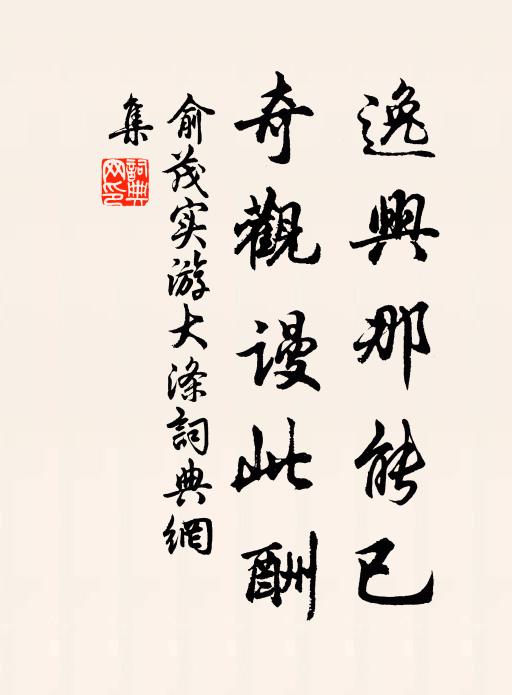 逸興那能已
奇觀謾此酬
俞茂实游大涤詞典網
集
詞典網印